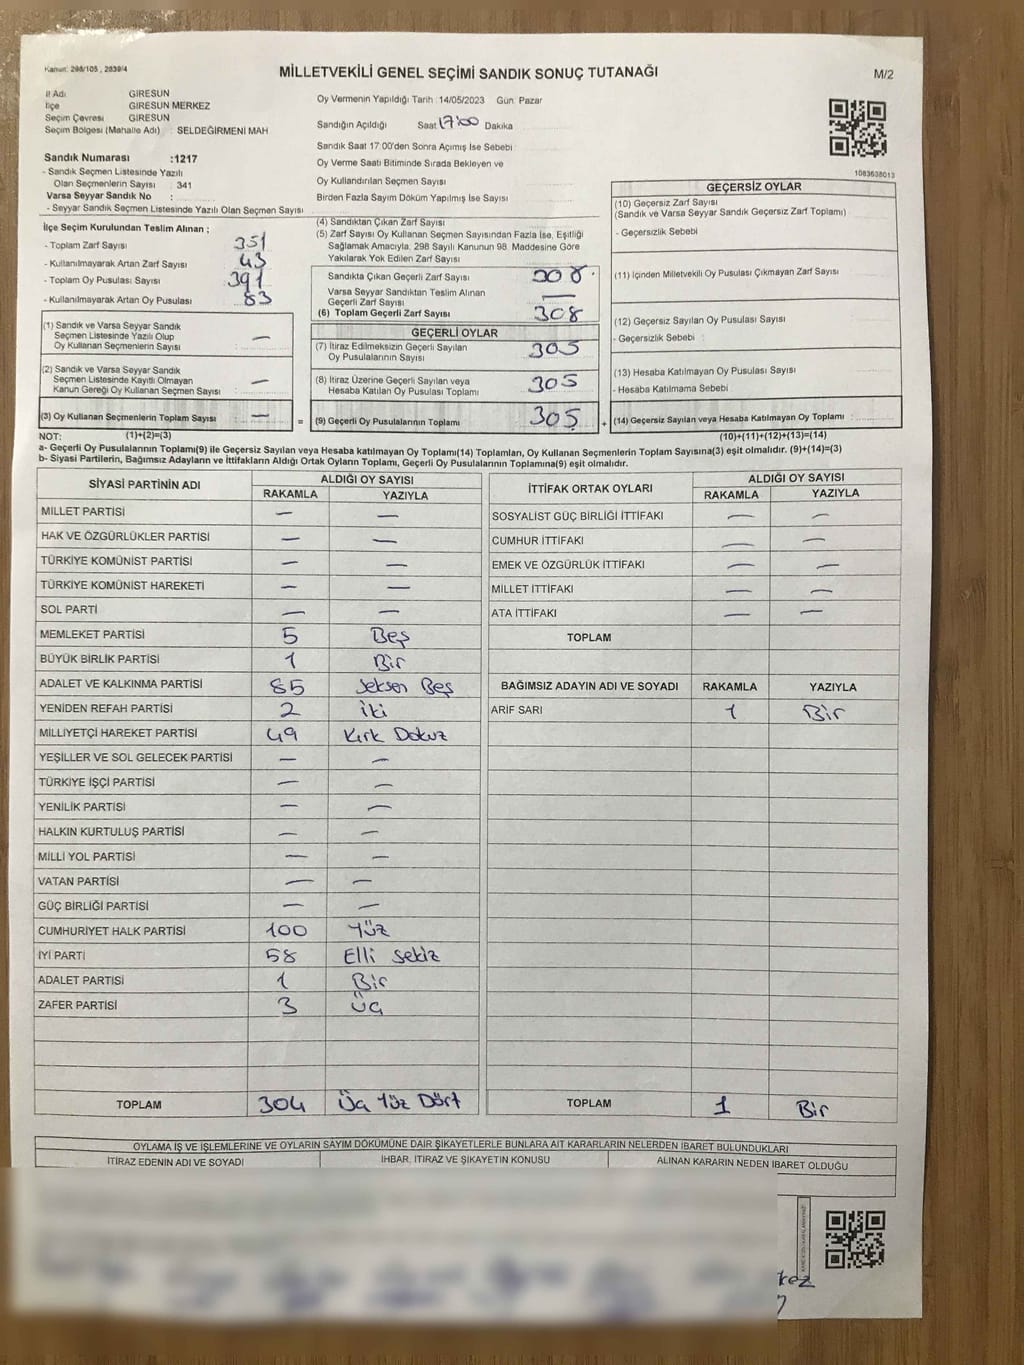 Kanun: 298/105 , 2839/4
MİLLETVEKİLİ GENEL SEÇİMİ SANDIK SONUÇ TUTANAĞI
M/2
İl Adı GİRESUN
İlçe GİRESUN MERKEZ
Seçim Çevresi GİRESUN
Seçim Bölgesi (Mahalle Adı) : SELDEĞİRMENİ MAH
Oy Vermenin Yapıldığı Tarih : 14/05/2023 Gün: Pazar
Sandığın Açıldığı Saat 17:00 Dakika
Sandık Saat 17:00'den Sonra Açımış İse Sebebi
Oy Verme Saati Bitiminde Sırada Bekleyen ve
Oy Kullandırılan Seçmen Sayısı
Birden Fazla Sayım Döküm Yapılmış İse Sayısı
Sandık Numarası :1217
- Sandık Seçmen Listesinde Yazılı
Olan Seçmenlerin Sayısı : 341
Varsa Seyyar Sandık No :
- Seyyar Sandık Seçmen Listesinde Yazılı Olan Seçmen Sayısı
1083638013
İlçe Seçim Kurulundan Teslim Alınan ;
- Toplam Zarf Sayısı 351
- Kullanılmayarak Artan Zarf Sayısı 43
- Toplam Oy Pusulası Sayısı 391
- Kullanılmayarak Artan Oy Pusulası 83
(1) Sandık ve Varsa Seyyar Sandık
Seçmen Listesinde Yazılı Olup
Oy Kullanan Seçmenlerin Sayısı —
(2) Sandık ve Varsa Seyyar Sandık
Seçmen Listesinde Kayıtlı Olmayan
Kanun Gereği Oy Kullanan Seçmen Sayısı —
(3) Oy Kullanan Seçmenlerin Toplam Sayısı —
(4) Sandıktan Çıkan Zarf Sayısı
(5) Zarf Sayısı Oy Kullanan Seçmen Sayısından Fazla İse, Eşitliği
Sağlamak Amacıyla, 298 Sayılı Kanunun 98. Maddesine Göre
Yakılarak Yok Edilen Zarf Sayısı
Sandıkta Çıkan Geçerli Zarf Sayısı 308
Varsa Seyyar Sandıktan Teslim Alınan
Geçerli Zarf Sayısı —
(6) Toplam Geçerli Zarf Sayısı 308
GEÇERLİ OYLAR
(7) İtiraz Edilmeksizin Geçerli Sayılan
Oy Pusulalarının Sayısı 305
(8) İtiraz Üzerine Geçerli Sayılan veya
Hesaba Katılan Oy Pusulası Toplamı 305
= (9) Geçerli Oy Pusulalarının Toplamı 305 +
GEÇERSİZ OYLAR
(10) Geçersiz Zarf Sayısı
(Sandık ve Varsa Seyyar Sandık Geçersiz Zarf Toplamı)
- Geçersizlik Sebebi
(11) İçinden Milletvekili Oy Pusulası Çıkmayan Zarf Sayısı
(12) Geçersiz Sayılan Oy Pusulası Sayısı
- Geçersizlik Sebebi
(13) Hesaba Katılmayan Oy Pusulası Sayısı
- Hesaba Katılmama Sebebi
(14) Geçersiz Sayılan veya Hesaba Katılmayan Oy Toplamı
NOT: (1)+(2)=(3) (10)+(11)+(12)+(13)=(14)
a- Geçerli Oy Pusulalarının Toplamı(9) ile Geçersiz Sayılan veya Hesaba katılmayan Oy Toplamı(14) Toplamları, Oy Kullanan Seçmenlerin Toplam Sayısına(3) eşit olmalıdır. (9)+(14)=(3)
b- Siyasi Partilerin, Bağımsız Adayların ve İttifakların Aldığı Ortak Oyların Toplamı, Geçerli Oy Pusulalarının Toplamına(9) eşit olmalıdır.
SİYASİ PARTİNİN ADI ALDIĞI OY SAYISI
RAKAMLA YAZIYLA
MİLLET PARTİSİ — —
HAK VE ÖZGÜRLÜKLER PARTİSİ — —
TÜRKİYE KOMÜNİST PARTİSİ — —
TÜRKİYE KOMÜNİST HAREKETİ — —
SOL PARTİ — —
MEMLEKET PARTİSİ 5 Beş
BÜYÜK BİRLİK PARTİSİ 1 Bir
ADALET VE KALKINMA PARTİSİ 85 Seksen Beş
YENİDEN REFAH PARTİSİ 2 İki
MİLLİYETÇİ HAREKET PARTİSİ 49 Kırk Dokuz
YEŞİLLER VE SOL GELECEK PARTİSİ — —
TÜRKİYE İŞÇİ PARTİSİ — —
YENİLİK PARTİSİ — —
HALKIN KURTULUŞ PARTİSİ — —
MİLLİ YOL PARTİSİ — —
VATAN PARTİSİ — —
GÜÇ BİRLİĞİ PARTİSİ — —
CUMHURİYET HALK PARTİSİ 100 Yüz
İYİ PARTİ 58 Elli Sekiz
ADALET PARTİSİ 1 Bir
ZAFER PARTİSİ 3 Üç
TOPLAM 304 Üç Yüz Dört
İTTİFAK ORTAK OYLARI ALDIĞI OY SAYISI
RAKAMLA YAZIYLA
SOSYALİST GÜÇ BİRLİĞİ İTTİFAKI — —
CUMHUR İTTİFAKI — —
EMEK VE ÖZGÜRLÜK İTTİFAKI — —
MİLLET İTTİFAKI — —
ATA İTTİFAKI — —
TOPLAM
BAĞIMSIZ ADAYIN ADI VE SOYADI RAKAMLA YAZIYLA
ARİF SARI 1 Bir
TOPLAM 1 Bir
OYLAMA İŞ VE İŞLEMLERİNE VE OYLARIN SAYIM DÖKÜMÜNE DAİR ŞİKAYETLERLE BUNLARA AİT KARARLARIN NELERDEN İBARET BULUNDUKLARI
İTİRAZ EDENİN ADI VE SOYADI İHBAR, İTİRAZ VE ŞİKAYETİN KONUSU ALINAN KARARIN NEDEN İBARET OLDUĞU